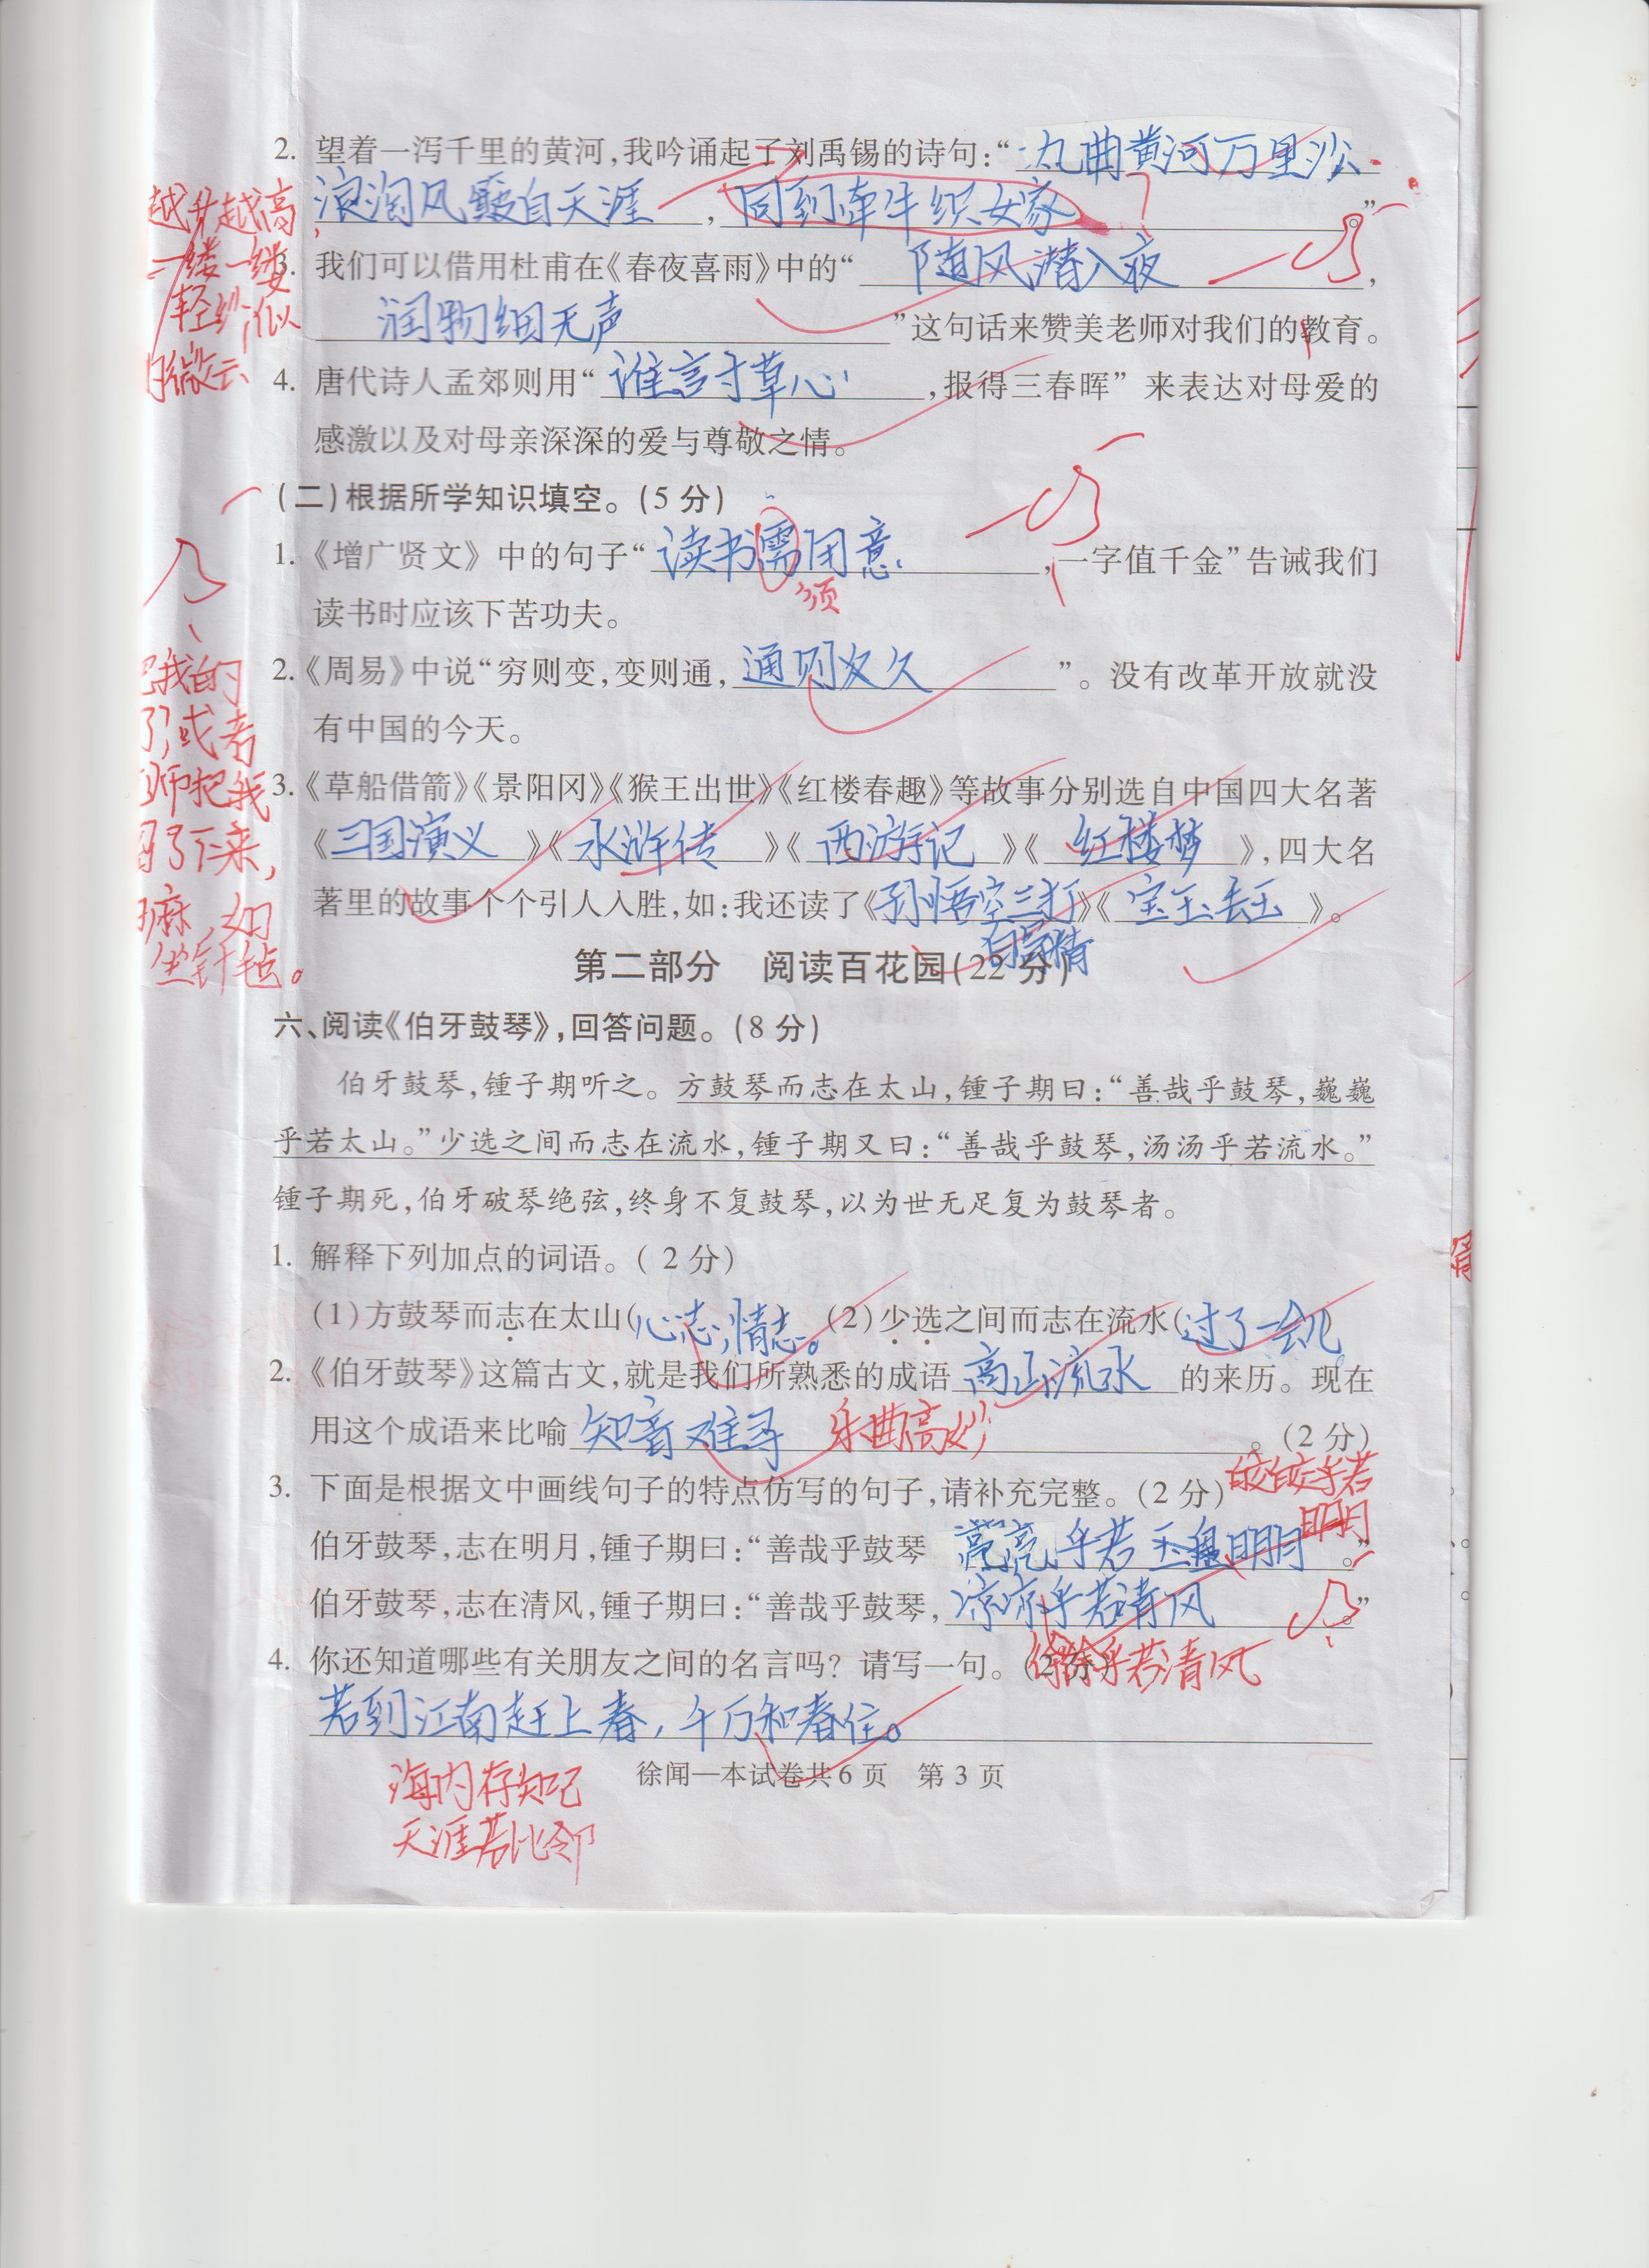 2. 望着一泻千里的黄河,我吟诵起了刘禹锡的诗句:“九曲黄河万里沙
浪淘风簸自天涯,同到牵牛织女家。”
越升越高,
一缕一缕
轻纱,似
微云
3. 我们可以借用杜甫在《春夜喜雨》中的“随风潜入夜,
润物细无声”这句话来赞美老师对我们的教育。
4. 唐代诗人孟郊则用“谁言寸草心,报得三春晖”来表达对母爱的
感激以及对母亲深深的爱与尊敬之情。
(二)根据所学知识填空。(5 分)
1.《增广贤文》中的句子“读书需用意,一字值千金”告诫我们
须
读书时应该下苦功夫。
2.《周易》中说“穷则变,变则通,通则久”。没有改革开放就没
有中国的今天。
我的
了,或者
师把我
了下来,
麻,如
坐针毡。
3.《草船借箭》《景阳冈》《猴王出世》《红楼春趣》等故事分别选自中国四大名著
《三国演义》《水浒传》《西游记》《红楼梦》,四大名
著里的故事个个引人入胜,如:我还读了《孙悟空三打》《宝玉丢玉》。
白骨精
第二部分 阅读百花园(22 分)
六、阅读《伯牙鼓琴》,回答问题。(8 分)
伯牙鼓琴,锺子期听之。方鼓琴而志在太山,锺子期曰:“善哉乎鼓琴,巍巍
乎若太山。”少选之间而志在流水,锺子期又曰:“善哉乎鼓琴,汤汤乎若流水。”
锺子期死,伯牙破琴绝弦,终身不复鼓琴,以为世无足复为鼓琴者。
1. 解释下列加点的词语。( 2 分)
(1)方鼓琴而志在太山(心志,情志。 (2)少选之间而志在流水(过了一会儿
2.《伯牙鼓琴》这篇古文,就是我们所熟悉的成语高山流水的来历。现在
用这个成语来比喻知音难寻 乐曲高妙。(2 分)
3. 下面是根据文中画线句子的特点仿写的句子,请补充完整。(2 分)
皎皎乎若
明月
伯牙鼓琴,志在明月,锺子期曰:“善哉乎鼓琴 亮亮乎若明月。”
伯牙鼓琴,志在清风,锺子期曰:“善哉乎鼓琴,凉凉乎若清风。”
4. 你还知道哪些有关朋友之间的名言吗? 请写一句。(2 分)
徐徐乎若清风
若到江南赶上春,千万和春住。
徐闻—本试卷共 6 页 第 3 页
海内存知己
天涯若比邻